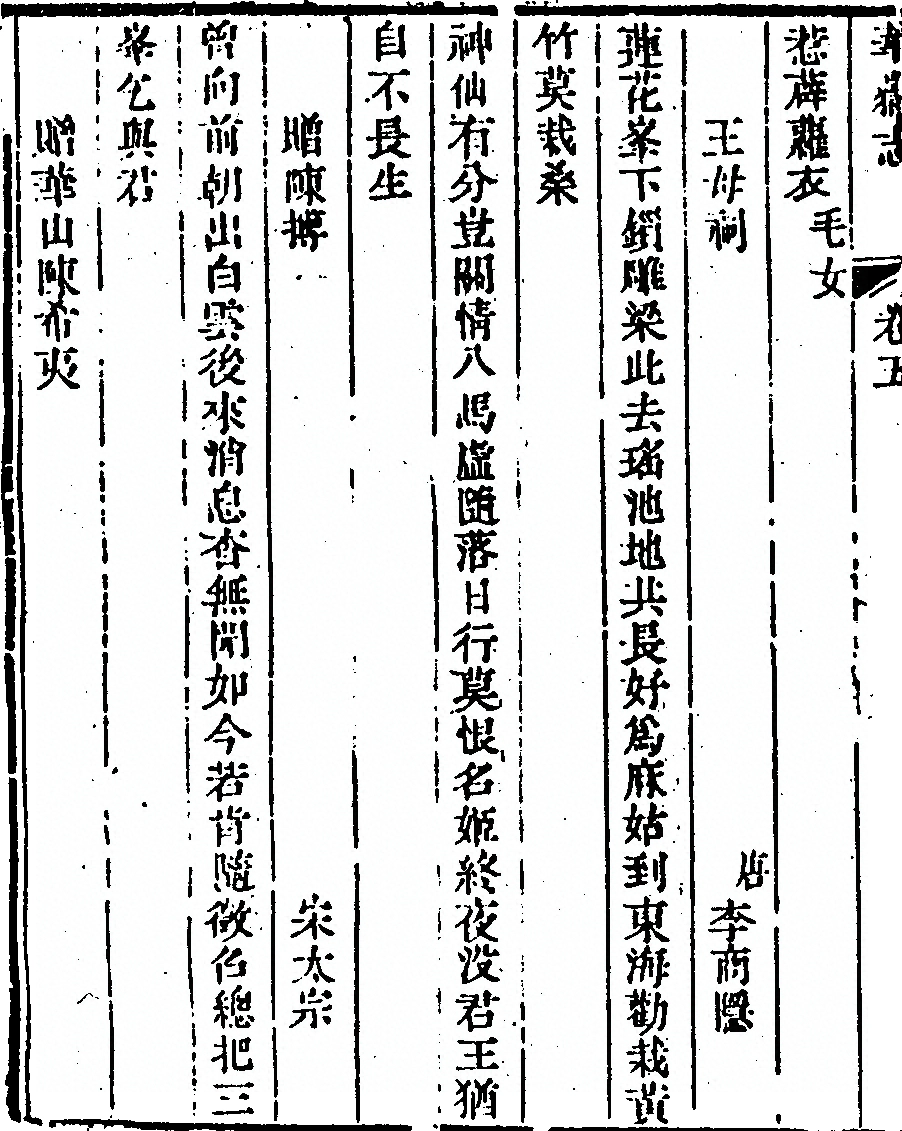 華嶽志 卷五
薜蘿衣 毛女
王母祠 唐李商隱
蓮花峯下鎖雕梁此去瑤池地共長好爲麻姑到東海勸栽黃
竹莫栽桑
神仙有分豈關情八馬虛隨落日行莫恨名姬終夜没君王猶
自不長生
贈陳摶 宋太宗
曾向前朝出白雲後來消息杳無聞如今若肯隨徵召總把三
峯乞與君
贈華山陳希夷